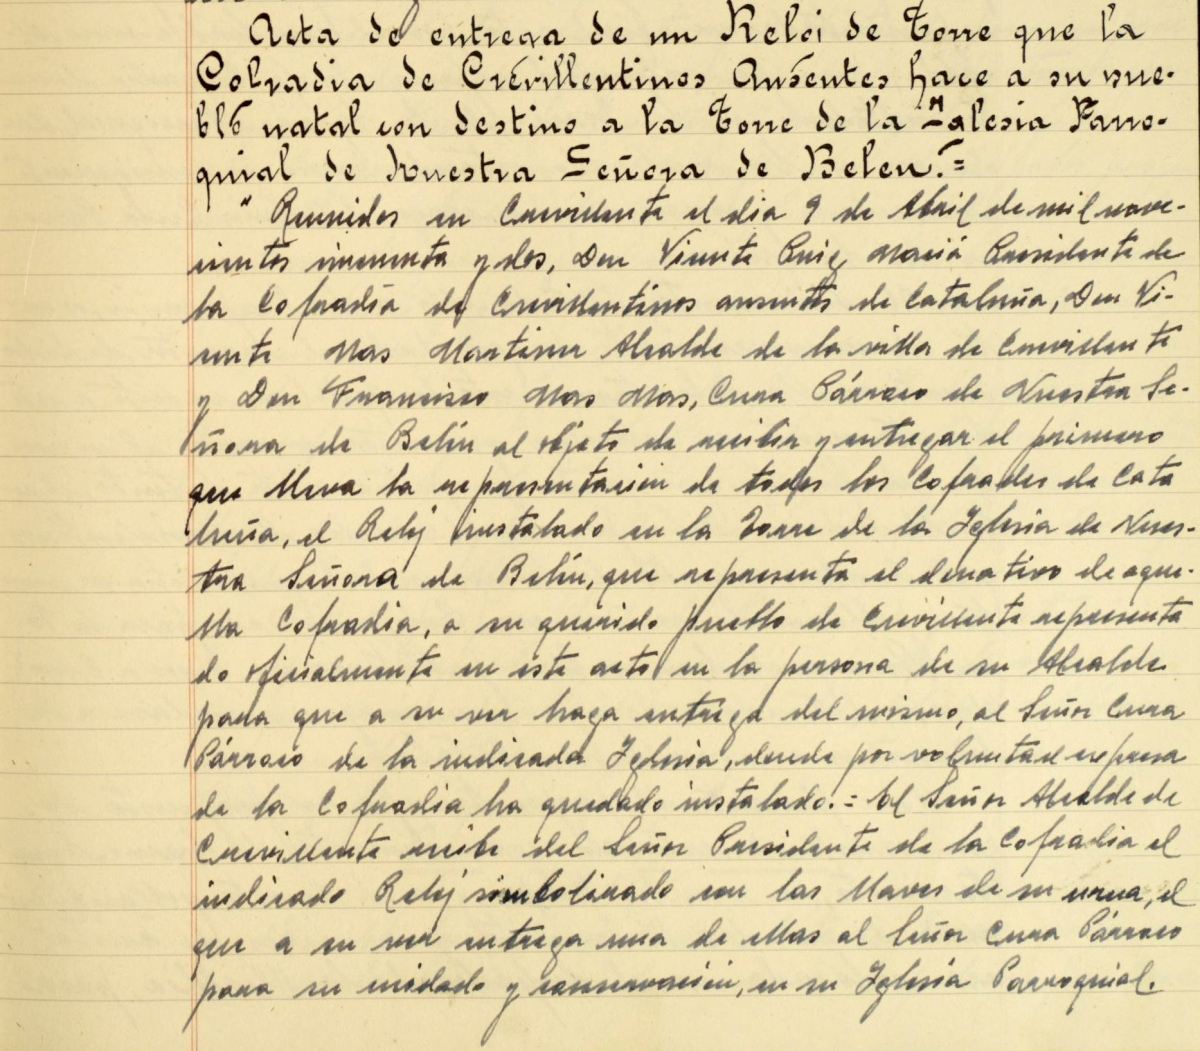 Acta de entrega de un Reloj de Torre que la
Cofradia de Crevillentinos Ausentes hace a su pue-
blo natal con destino a la Torre de la Iglesia Parro-
quial de Nuestra Señora de Belen.=
" Reunidos en Crevillente el dia 9 de Abril de mil nove-
cientos cincuenta y dos, Don Vicente Puig Maciá Presidente de
la Cofradía de Crevillentinos ausentes de Cataluña, Don Vi-
cente Mas Martinez Alcalde de la villa de Crevillente
y Don Francisco Mas Mas, Cura Párroco de Nuestra Se-
ñora de Belén al objeto de recibir y entregar el primero
que lleva la representación de todos los Cofrades de Cata
luña, el Reloj instalado en la Torre de la Iglesia de Nues-
tra Señora de Belén, que representa el donativo de aque-
lla Cofradia, a su querido pueblo de Crevillente representa
do oficialmente en este acto en la persona de su Alcalde
para que a su vez haga entrega del mismo, al Señor Cura
Párroco de la indicada Iglesia, donde por voluntad expresa
de la Cofradia ha quedado instalado.= El Señor Alcalde de
Crevillente recibe del Señor Presidente de la Cofradia el
indicado Reloj simbolizado con las llaves de su urna, el
que a su vez entrega una de ellas al Señor Cura Párroco
para su cuidado y conservación, en su Iglesia Parroquial.